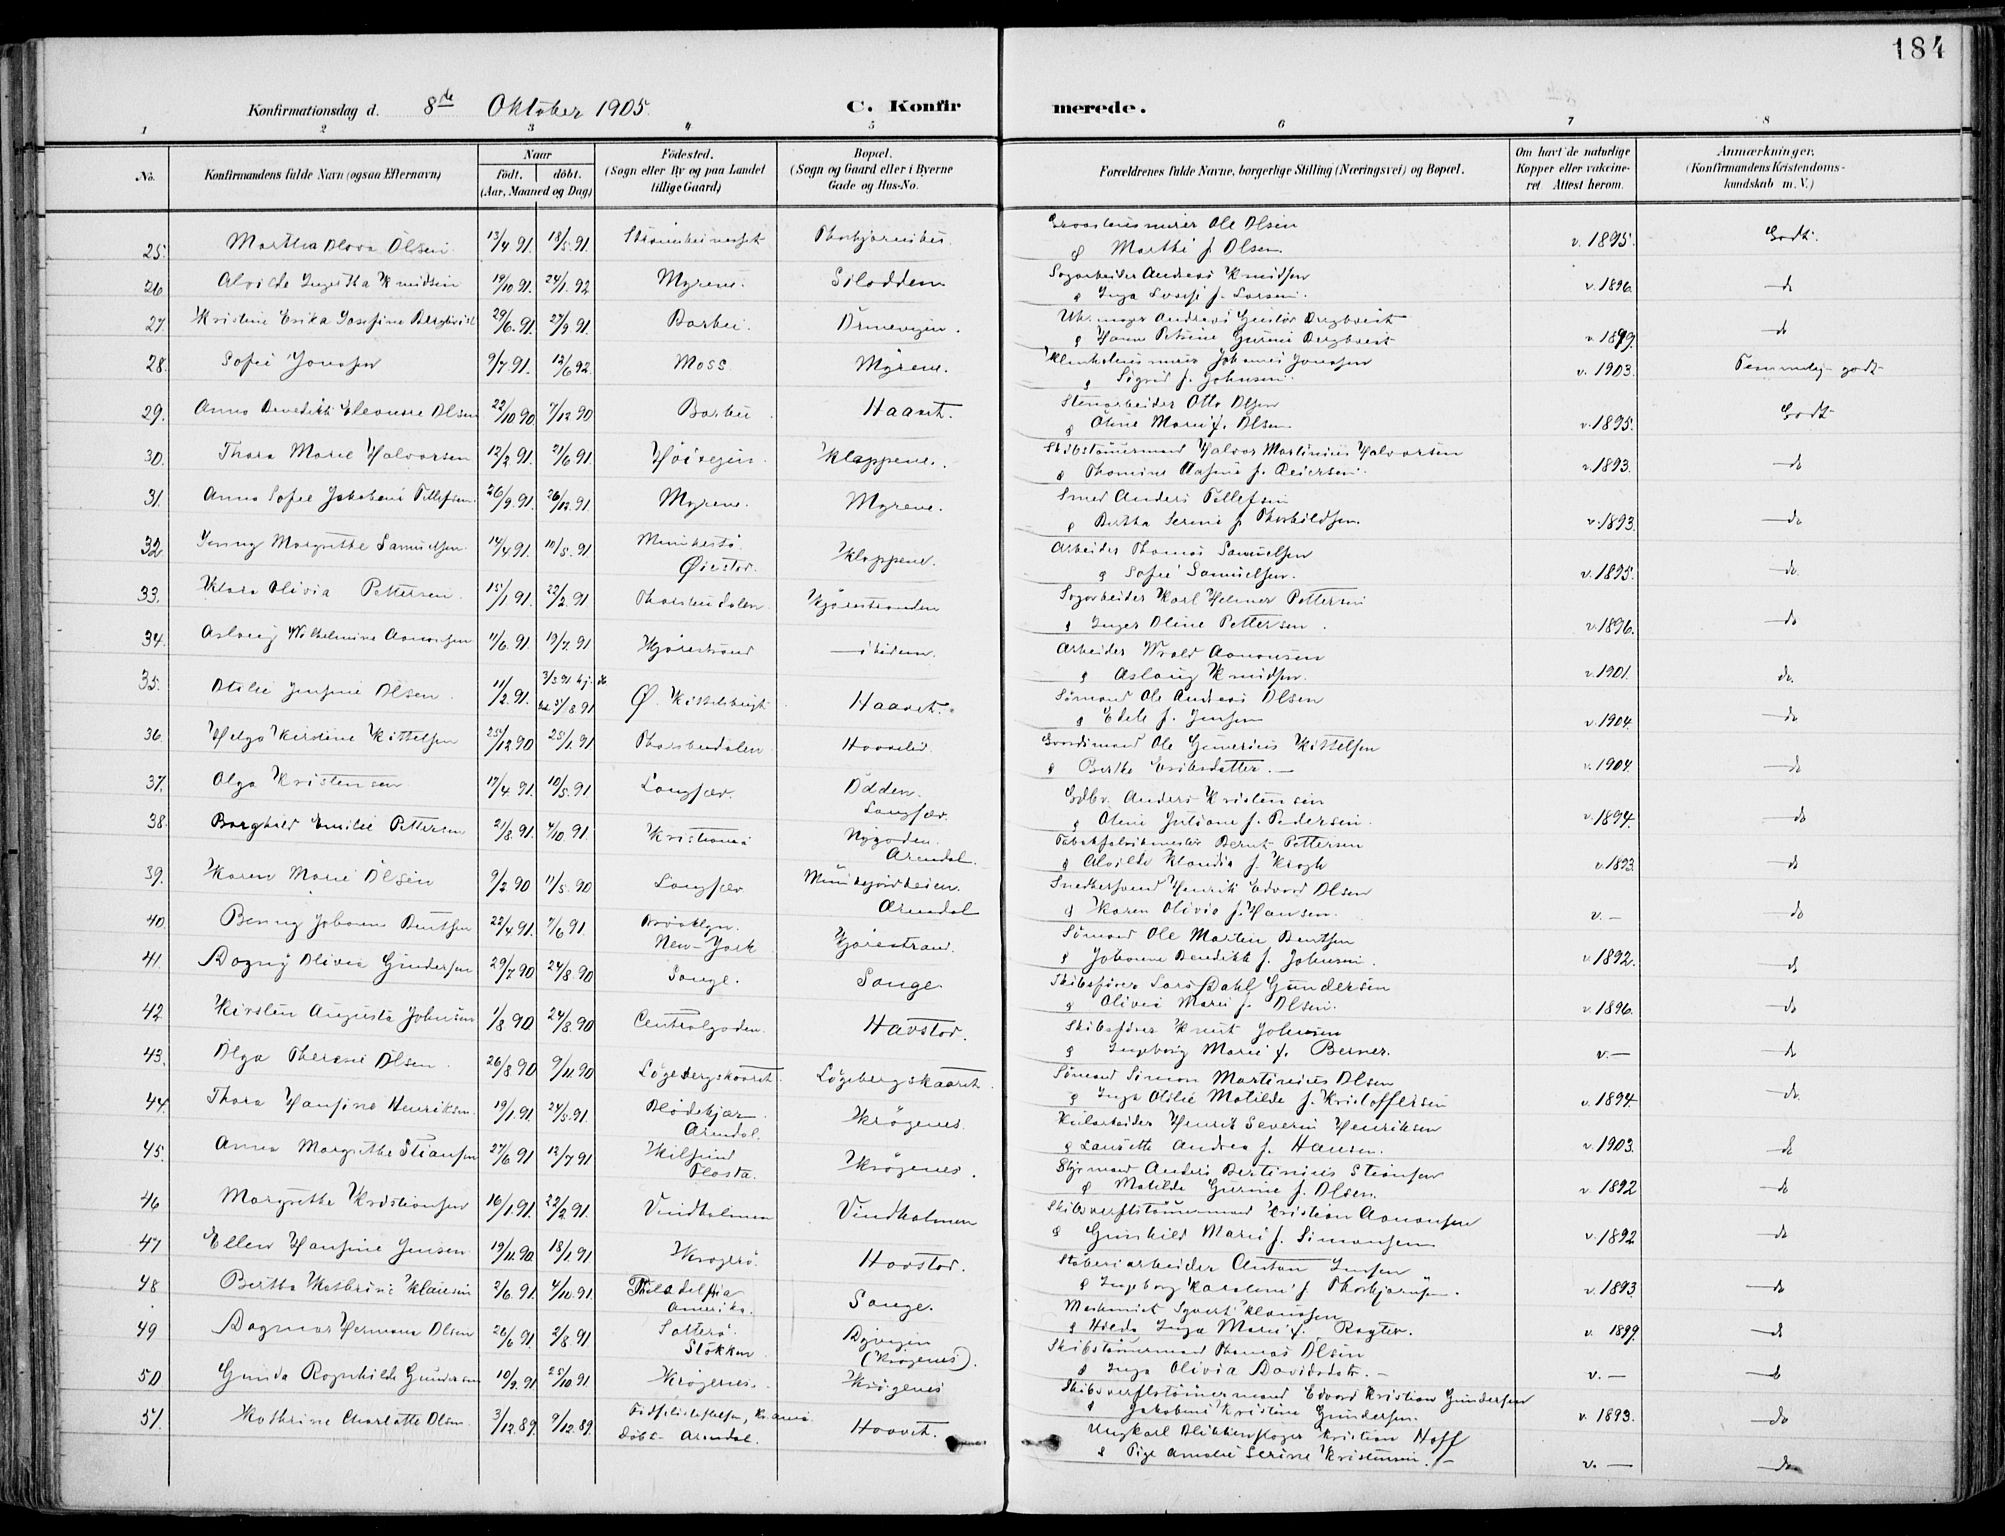 184
Konfirmationsdag d. 8de Oktober 1905. C. Konfirmerede.
1 2 3 4 5 6 7 8
No. Konfirmandens fulde Navn (ogsaa Efternavn) Naar født. døbt. (Aar, Maaned og Dag) Fødested. (Sogn eller By og paa Landet tillige Gaard) Bopæl. (Sogn og Gaard eller i Byerne Gade og Hus-No. Forældrenes fulde Navne, borgerlige Stilling (Næringsvei) og Bopæl. Om havt de naturlige Kopper eller vakcineret Attest herom. Anmærkninger. (Konfirmandens Kristendomskundskab m. V.)
25. Martha Olava Olsen 13/4 91 18/5 91 Ole Olsen
& Marthe f. Olsen v. 1895. Godt.
26 Knudsen 19/10 91. 24/1 92 Myrene. Siloddem Sagarbeider Andreas Knudsen
& Inga f. Larsen. v. 1896. do
27. Kristine Erika Josefine Bergkvist 29/6 91. 27/9 91. Barbu. v. 1899. do
28. Sofie Jonassen 9/7 91. 13/6 92. Moss Myrene. Johannes Jonassen
& Sigrid f. Johnsen. v. 1903. Temmelig godt
29. Anna Benedikte Eleonore Olsen 22/10 90 7/12 90 Barbu Haavet. Stenarbeider Otto Olsen
& Oline Marie f. Olsen v. 1895. Godt
30. Thora Marie Halvorsen 12/2 91. 21/6 91. Kloppene. Skibstømmermand Halvor Martinius Halvorsen
& Thomine f. v. 1893. do
31. Anna Sofie Jakobine Tellefsen 26/9 91. 26/12 91. Myrene. Myrene. Smed Anders Tellefsen
& Bertha Serine f. Thorkildsen. v. 1893. do
32. Jenny Margrethe Samuelsen 14/4 91. 10/5 91 Øiestad. Kloppene. Arbeider Thomas Samuelsen
& Sofie Samuelsen. v. 1895. do
33. Klara Olivia Pettersen. 15/1 91. 22/2 91 Thorbudalen. Kjørestranden Sagarbeider Karl Helmer Pettersen
& Inger Oline Pettersen. v. 1896. do
34. Aslaug Wilhelmine Aanonsen 11/6 91. 19/7 91 Kjørestrand ibidem. Arbeider Aanonsen
& Aslaug Knudsen. v. 1901. do.
35. Otilie Jensine Olsen. 11/2 91. 3/3 91 hj. db 5/8 91 Ø. Haavet. Sømand Ole Andreas Olsen
& Edele f. Jensen v. 1904. do
36. Helga Kirstine Kittelsen 25/12 90 25/1 91 Thorbudalen Ole Gunerius Kittelsen
& Berthe Eriksdatter. v. 1904. do
37. Olga Kristensen 17/4 91. 10/5 91. Langsæv. Odden. Langsæv. Anders Kristensen
& Oline Juliane f. Pedersen. v. 1894. do
38. Borghild Emilie Pettersen 21/8 91. 4/10 91. Kristiania Nygaden. Arendal. Bernt Pettersen
& Alvilde Klaudia f. Krogh v. 1893. do
39. Karen Marie Olsen 9/2 90 11/5 90 Langsæv Munkejordheien. Arendal Snedkersvend Henrik Edvard Olsen
& Karen Olivia f. Hansen. v. — do
40. Benny Johanne Bentsen 22/4 91. 7/6 91. Brooklyn. New-York Kjørestrand. Sømand Ole Martin Bentsen
& Johanne Benedikte f. Johnsen. v. 1892. do
41. Dagny Olivia Gundersen 29/7 90 24/8 90 Songe. Songe Skibsfører Lars Dahl Gundersen
& Olivia Marie f. Olsen. v. 1896. do
42 Kirsten Augusta Johnsen 1/8 90 24/8 90 Centralgaden. Havstad. Skibsfører Knut Johnsen
& Ingeborg Marie f. Berner. v. — do
43. Olga Therese Olsen. 26/8 90 9/11 90 Løgebergskaaret Løgebergskaaret Sømand Simon Martinius Olsen
& Inga Otilie Matilde f. Kristoffersen v. 1894. do.
44. Thora Hansine Henriksen. 19/1 91. 24/5 91. Blødekjær. Arendal. Krøgenes. Henrik Severin Henriksen
& Laurette Andrea f. Hansen. v. 1903. do
45. Anna Margrethe Stiansen 27/6 91 12/7 91 Kilsund Flosta. Krøgenes. Styrmand Anders Bertinius Stiansen
& Matilde Gurine f. Olsen. v. 1892 do
46 Margrethe Kristiansen 16/1 91. 22/2 91. Vindholmen Vindholmen Skibsverftstømmermand Kristian Aanonsen
& Gunhild Marie f. Simonsen v. 1892 do
47 Ellen Hansine Jensen 19/11 90 18/1 91 Kragerø. Havstad. Støberiarbeider Anton Jensen
& Ingeborg Karoline f. Thorbjørnsen. v. 1893 do
48 Bertha Kathrine Klausen 2/6 91. 4/10 91. Filadelfia Amerika. Songe. Maskinist Syvert Klausen
& Hilda Inga Marie f. v. 1899. do
49 Dagmar Hermana Olsen 26/6 91 2/8 91 Satterø. Stokken (Krøgenes). Skibstømmermand Thomas Olsen
& Inga Olivia Davidsdtr. v. — do
50 Gunda Ragnhilde Gundersen 10/9 91 25/10 91 Krøgenes. Krøgenes Skibsverftstømmermand Edvard Kristian Gundersen
& Jakobine Kristine Gundersen. v. 1893. do
51. Kathrine Charlotte Olsen 3/12 89. 9/12 89. Fødselsstiftelsen, Kr.ania. Døbt Arendal. Haavet. Ungkarl Blikkenslager Kristian Hoff
& Pige Amalie Serine Kristensen. v. — do